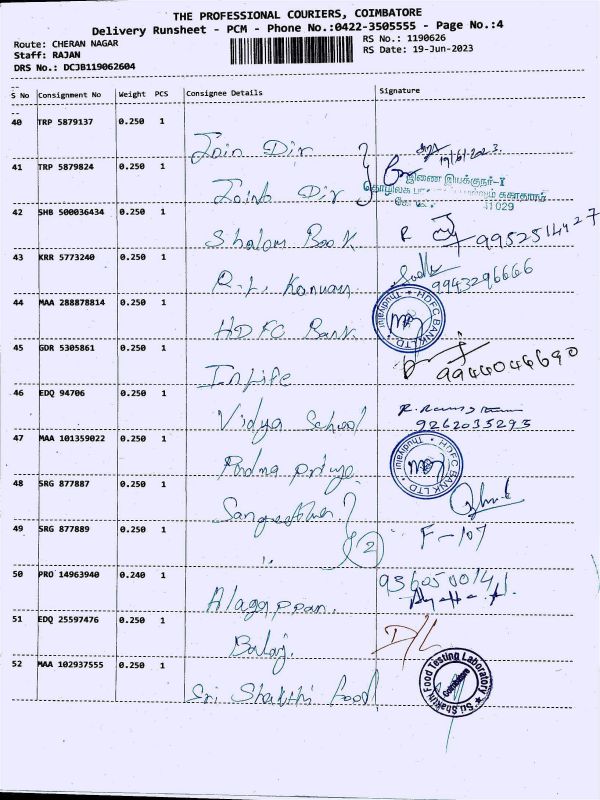 THE PROFESSIONAL COURIERS, COIMBATORE
Delivery Runsheet - PCM - Phone No.:0422-3505555 - Page No.:4
Route: CHERAN NAGAR
RS No.: 1190626
Staff: RAJAN
RS Date: 19-Jun-2023
DRS No.: DCJB119062604
S No Consignment No Weight PCS Consignee Details Signature
40 TRP 5879137 0.250 1
Join Dir
19/6/2023
41 TRP 5879824 0.250 1
இணை இயக்குநர்-I
Joinb Dir
சுகாதாரம்
029
42 SHB 500036434 0.250 1
Shalom Book
R
9952514427
43 KRR 5773240 0.250 1
R.L. Kannan
9943296666
44 MAA 288878814 0.250 1
HDFC Bank
HDFC BANK LTD. * Thudiyalur *
45 GDR 5305861 0.250 1
Inlife
9944046690
46 EDQ 94706 0.250 1
Vidya School
9262035293
47 MAA 101359022 0.250 1
Padma priya
HDFC BANK LTD. * Thudiyalur *
48 SRG 877887 0.250 1
49 SRG 877889 0.250 1
2
F-107
50 PRO 14963940 0.240 1
Alagappan
9360500141
51 EDQ 25597476 0.250 1
Balaj
D/L
52 MAA 102937555 0.250 1
Sri Shakthi Food
Sri Shakthi Food Testing Laboratory
Coimbatore